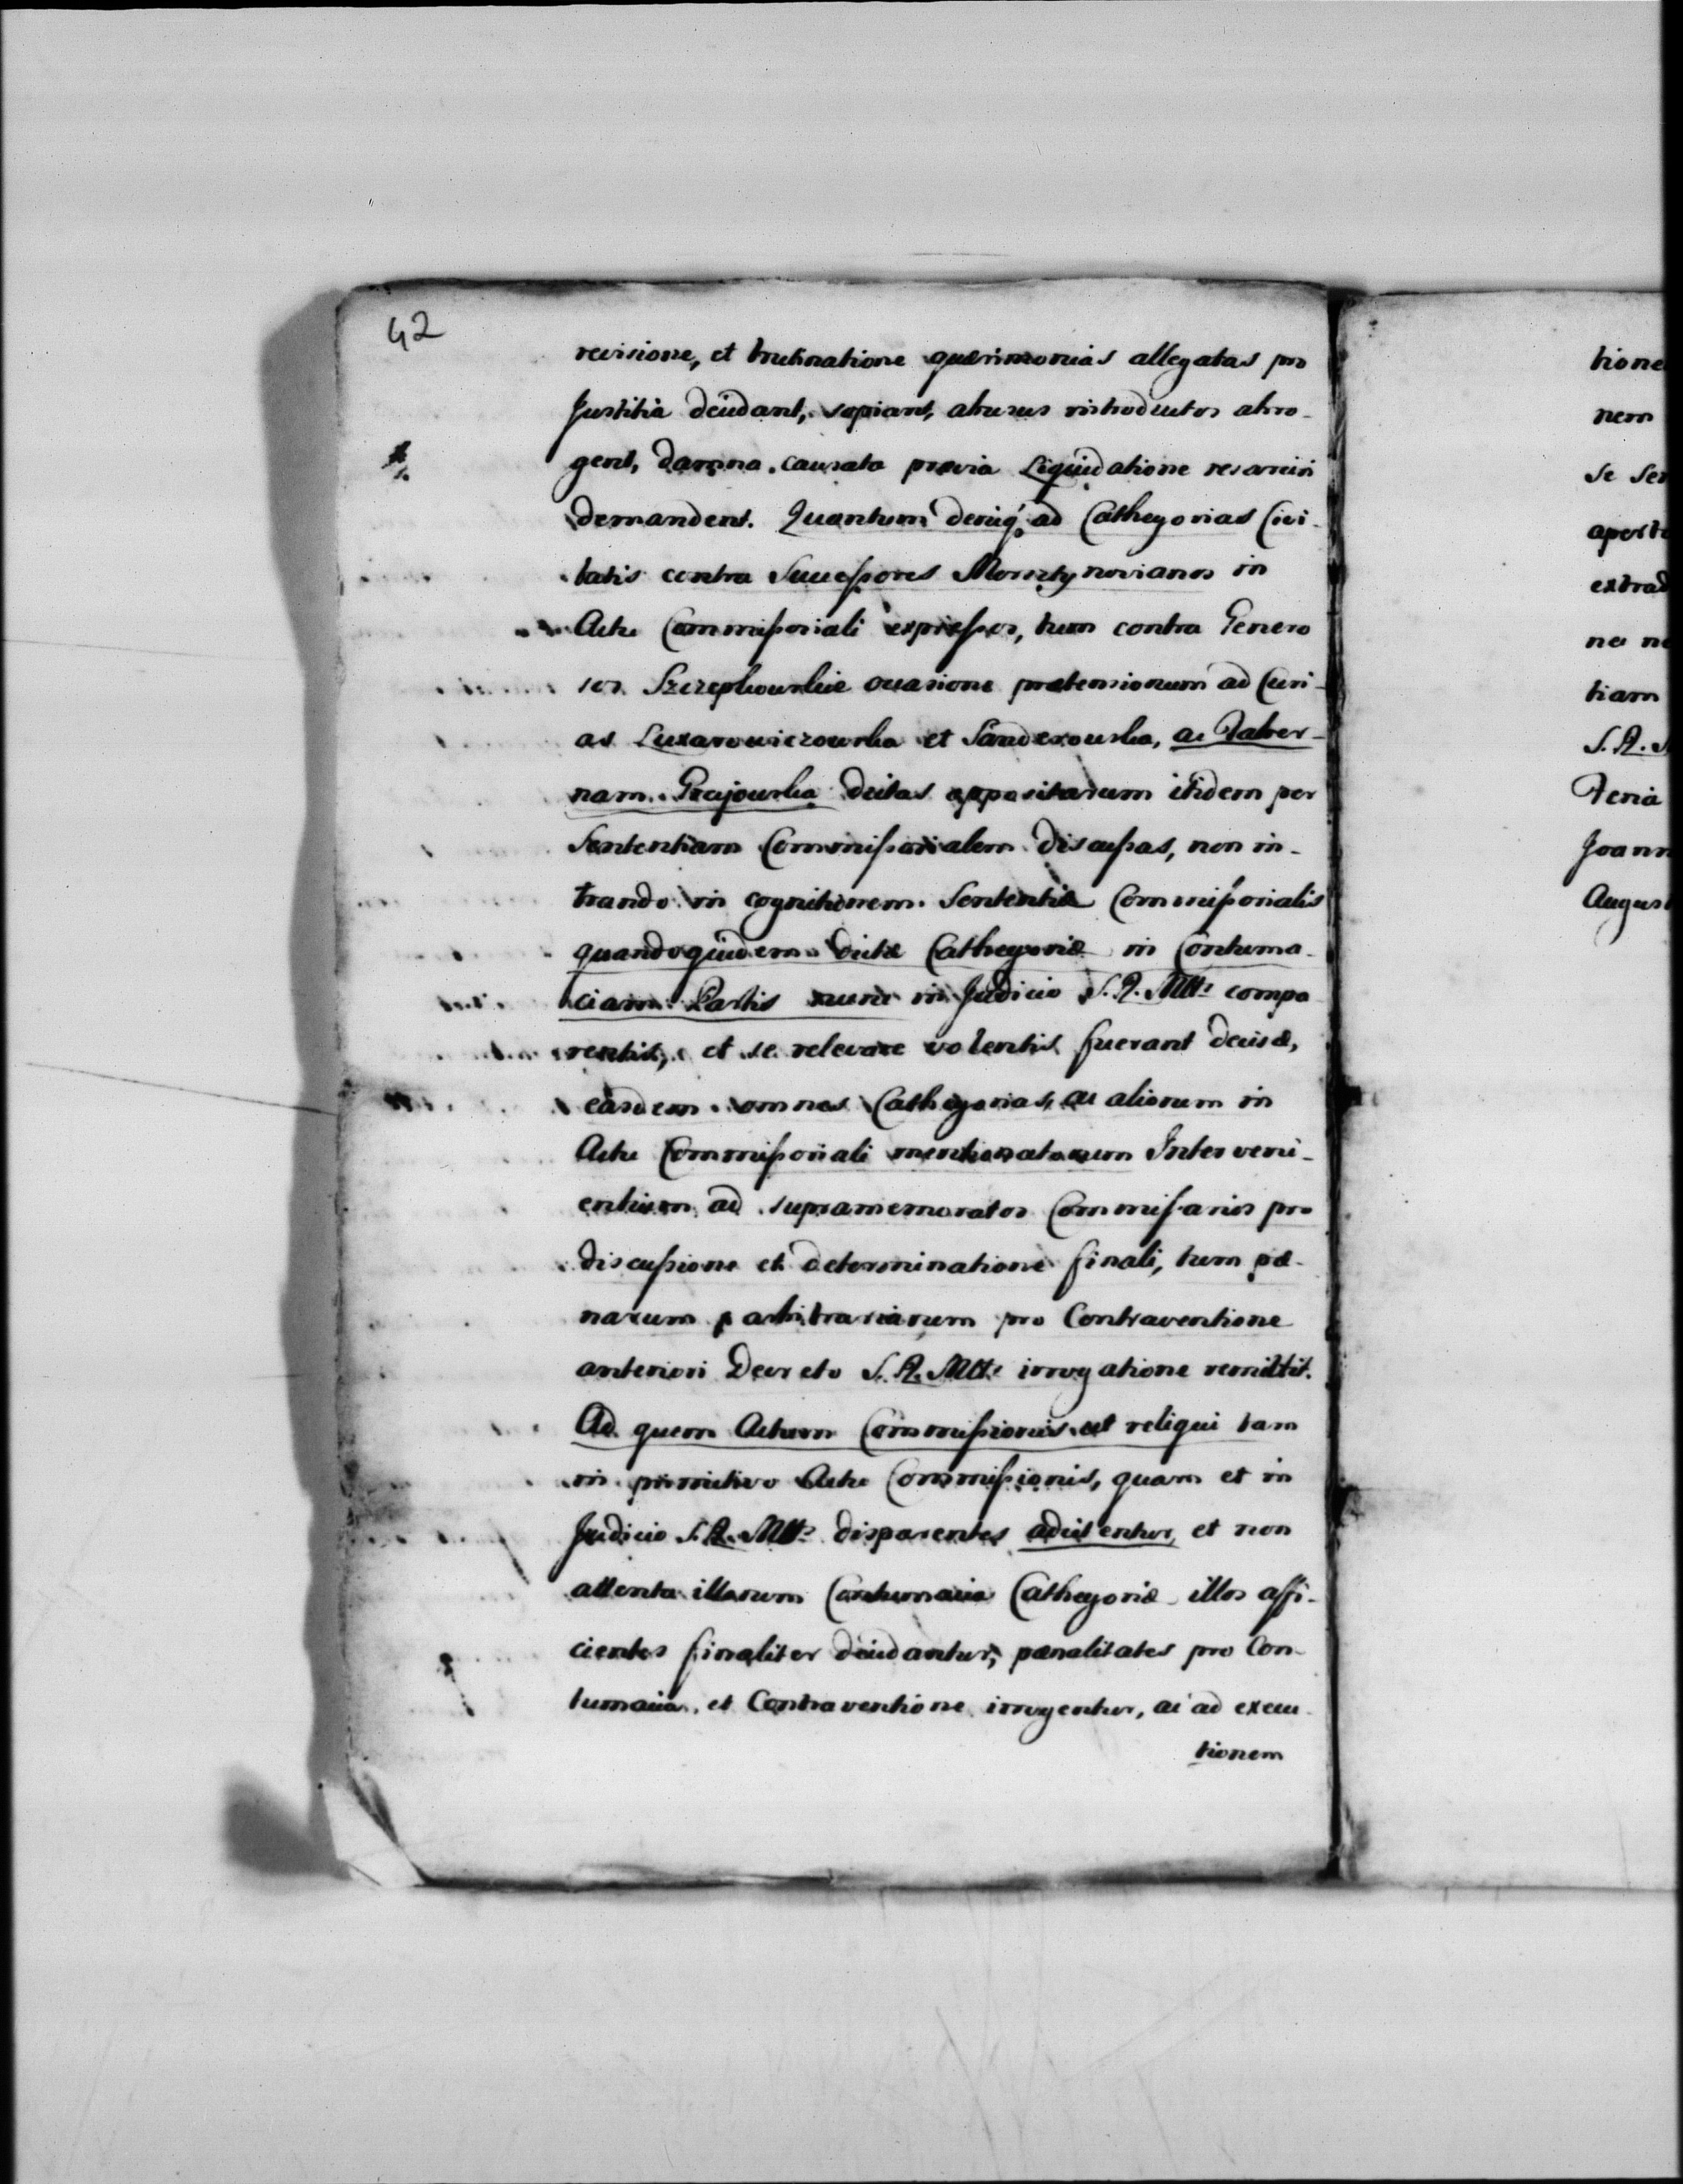 42
revisione, et trutinatione quærimonias allegatas pro
Justitia decidant, sopiant, abusus introductos abro-
gent, damna causata prævia Liquidatione resarciri
demandent. Quantum deniq; ad Cathegorias Civi-
tatis contra Successores Morsztynovianos in
Actu Commissoriali expressos, tum contra Genero
sos Szczepkowskie occasione prætensionum ad Curi-
as Luxarowiczowska et Sanderowska, ac Taber-
nam Grajowska dictas oppositarum itidem per
Sententiam Commissorialem discussas, non in-
trando in cognitionem Sententiæ Commissorialis
quandoquidem dictæ Cathegoriæ in Contuma-
ciam Partis nunc in Judicio S. R. Mttis compa
rentis, et se relevare volentis fuerant decisæ,
easdem omnes Cathegorias, ac aliorum in
Actu Commissoriali mentionatorum Interveni-
entium ad supramemoratos Commissarios pro
discussione et determinatione finali, tum pœ-
narum arbitrariarum pro Contraventione
anteriori Decreto S. R. Mttis irrogatione remittit.
Ad quem Actum Commissionis ut reliqui tam
in primitivo Actu Commissionis, quam et in
Judicio S. R. Mttis disparentes adcitentur, et non
attenta illorum Contumacia Cathegoriæ illos affi-
cientes finaliter decidantur, pœnalitates pro Con-
tumacia, et Contraventione irrogentur, ac ad execu-
tionem
tione
nem
se
extrad
tiam
S. R.
Feria
Joann
August